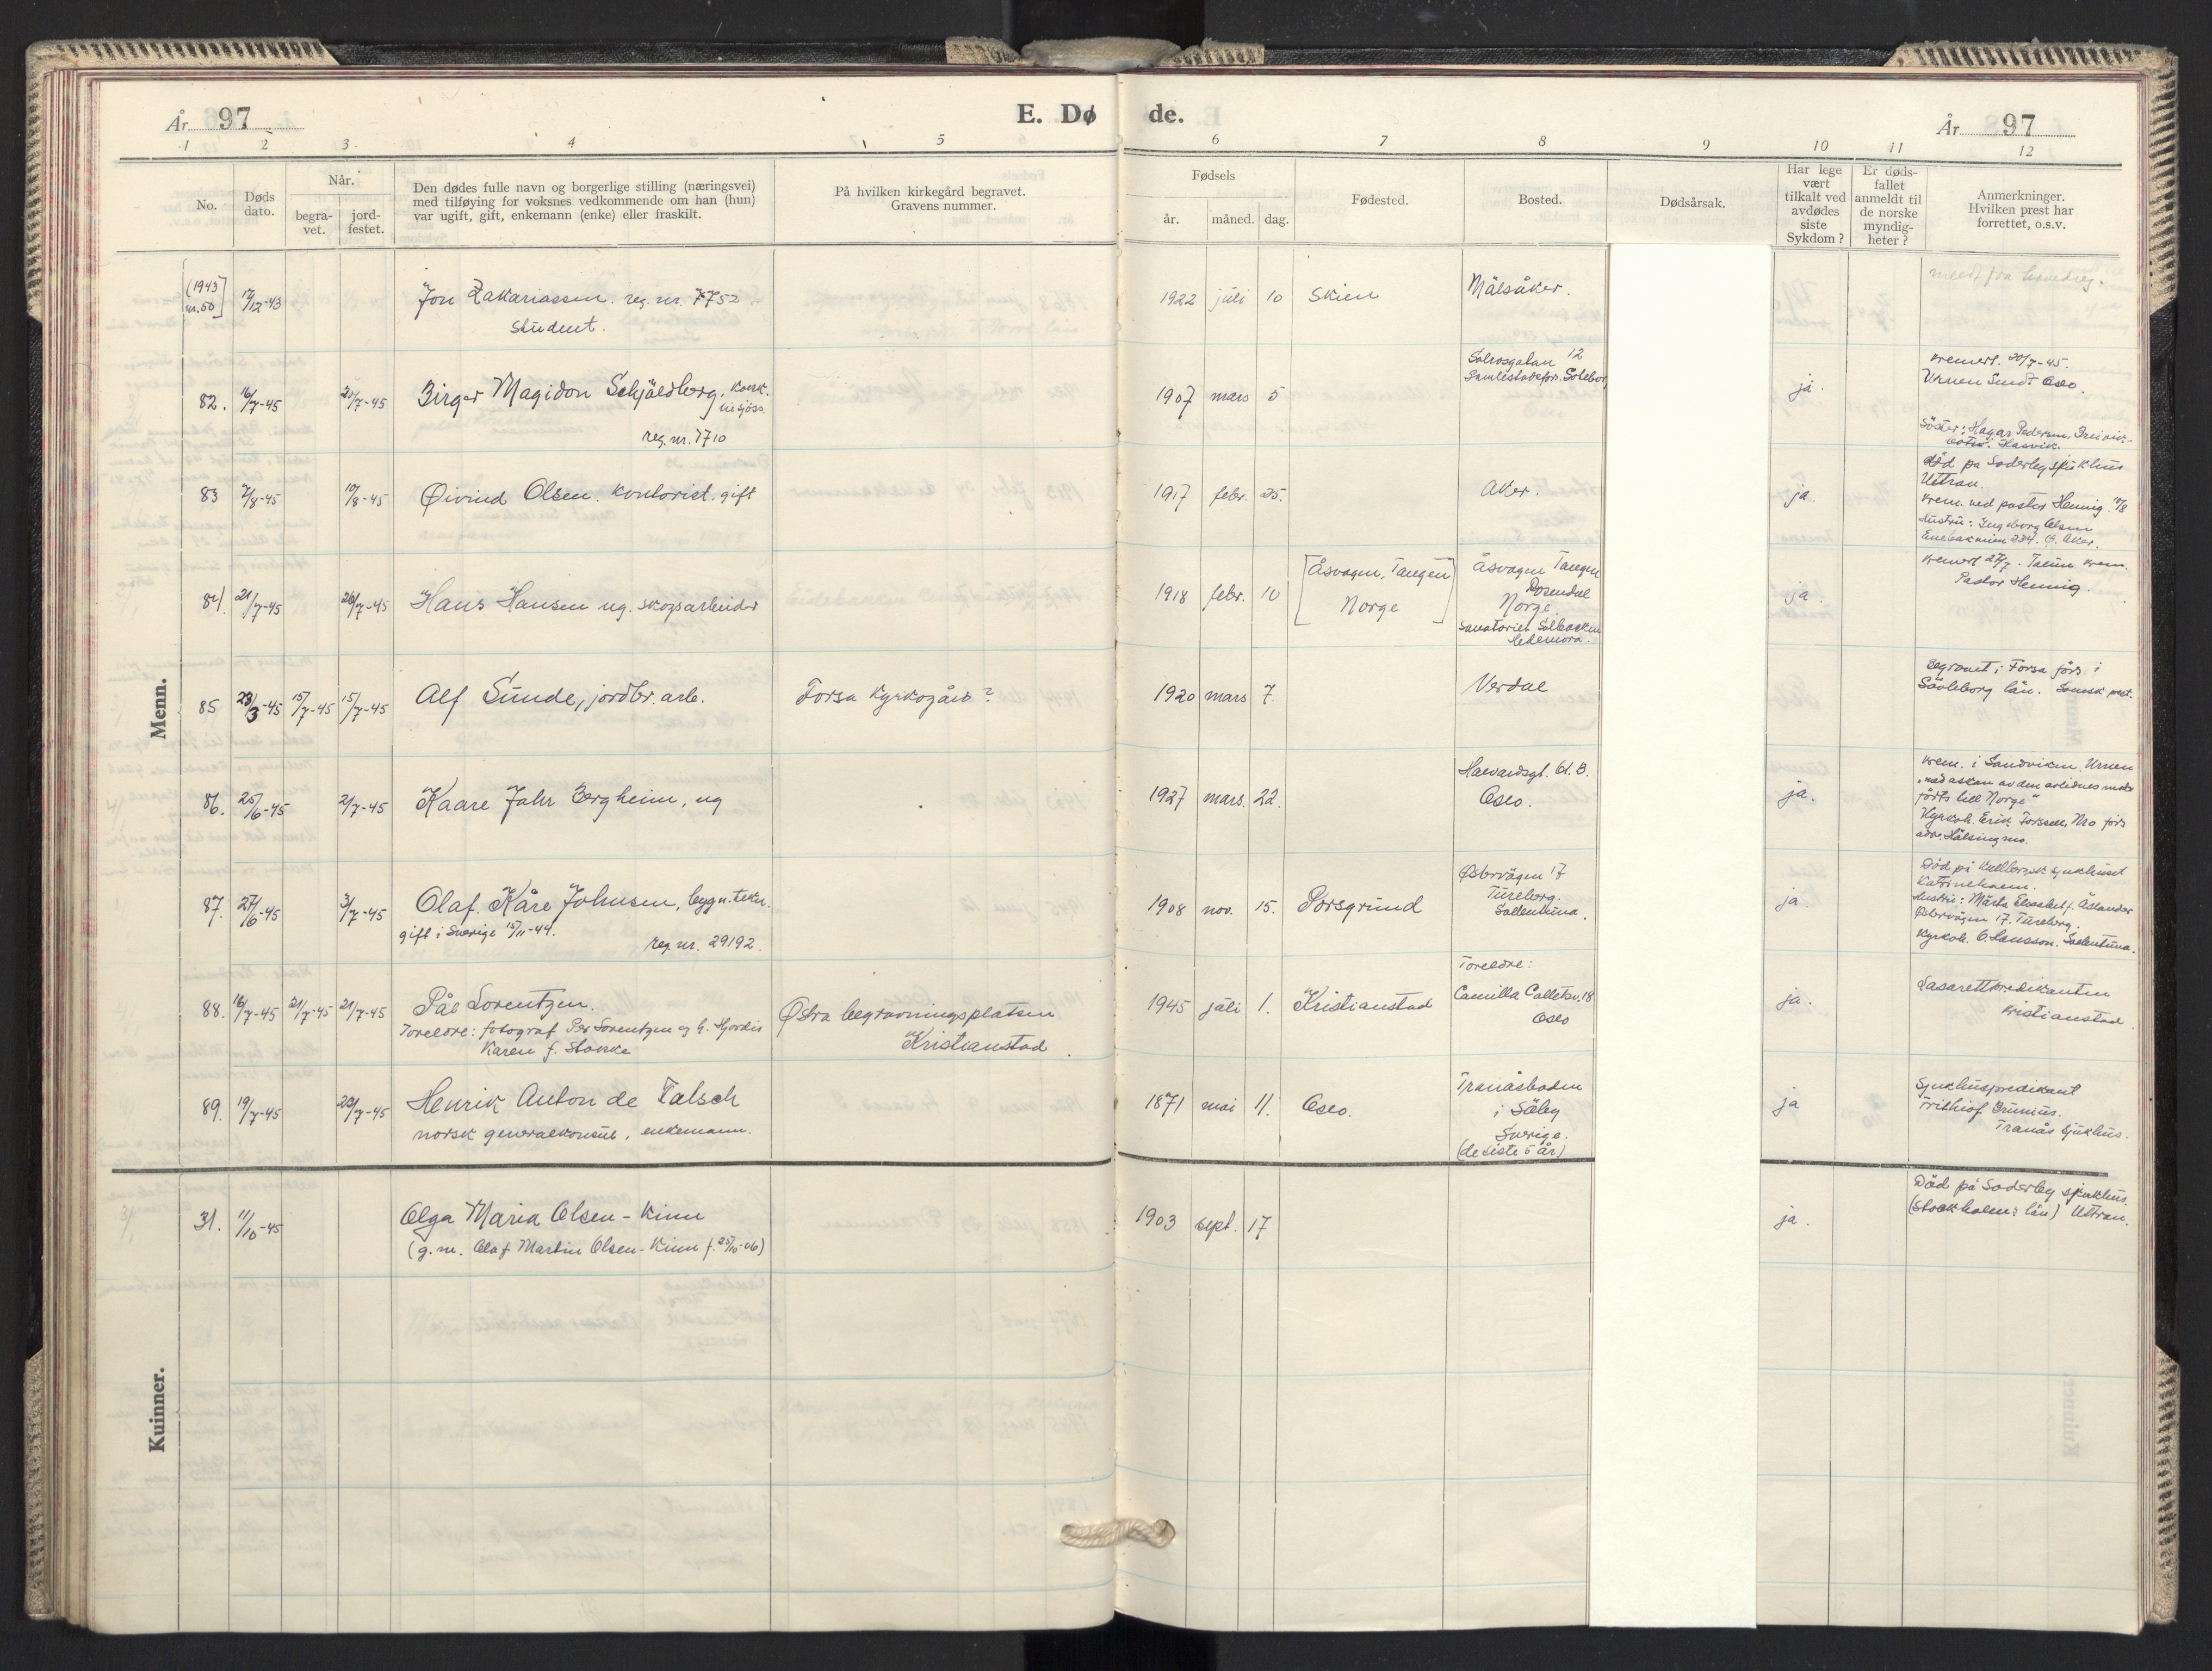 År 97
E. Dø
de.
År 97
1 2 3 4 5 6 7 8 9 10 11 12
No.
Døds
dato.
Når.
begra-
vet.
jord-
festet.
Den dødes fulle navn og borgerlige stilling (næringsvei)
med tilføying for voksnes vedkommende om han (hun)
var ugift, gift, enkemann (enke) eller fraskilt.
På hvilken kirkegård begravet.
Gravens nummer.
Fødsels
år.
måned.
dag.
Fødested.
Bosted.
Dødsårsak.
Har lege
vært
tilkalt ved
avdødes
siste
Sykdom?
Er døds-
fallet
anmeldt til
de norske
myndig-
heter?
Anmerkninger.
Hvilken prest har
forrettet, o.s.v.
Menn.
(1943
nr. 50 17/12-43 Jon Zakariassen. reg. nr. 7752
student.
1922 juli 10 Skien Mälsåker.
meldt fra hovedreg.
82. 16/7-45 20/7-45 Birger Magidon Schjäldberg, konst.
reg. nr. 7710
1907 mars 5
Solrosgatan 12
ja.
kremert. 20/7-45.
Urnen sendt Oslo.
Söster: Hagar Pedersen,
Hasvik.
83 7/8-45 10/8-45 Øivind Olsen. kontorist. gift
1917 febr. 25. Aker. ja.
död på Söderby sjukhus
Uttran.
krem. ved pastor Hennig. 10/8
Hustru: Ingeborg Olsen
Enebakveien 234. Ö. Aker.
84. 21/7-45 26/7-45 Hans Hansen ug. skogsarbeider
1918 febr. 10
Åsvagen, Tangen
Norge
Åsvagen Tangen
Rosendal
Norge.
Sanatoriet Solbacken
Hedemora.
ja.
kremert 27/7. krem.
Pastor Hennig.
85 28/3-45 15/7-45 15/7-45 Alf Sunde, jordbr. arb.
Forsa kyrkogård?
1920 mars 7. Verdal
Begravet i Forsa förs. i
Gävleborg län. Svensk prest.
86. 25/6-45 2/7-45 Kaare Jahr Bergheim, ug
1927 mars. 22.
Havardsgt. 61. B.
Oslo.
ja.
krem. i Sandviken. Urnen
"med askan av den avlidnes
förts till Norge"
Kyrkoh. Erik Forssell, Mo förs
adr. Hälsingmo.
87. 27/6-45 3/7-45 Olaf. Kåre Johnsen, bygn. tekn.
gift i Sverige 15/11-44.
reg. nr. 29192.
1908 nov. 15. Porsgrund
Östervägen 17
Tureberg.
Sollentuna.
ja.
Död på Kullbergsk. sjukhuset
Katrineholm.
Hustru: Märta Elisabet f. Åslander
Östervägen 17. Tureberg.
Kyrkoh. O. Hansson. Sollentuna.
88. 16/7-45 21/7-45 21/7-45 Pål Lorentzen.
Foreldre: fotograf Per Lorentzen og h. Hjördis
Karen f. Storke
Östra begravningsplatsen
Kristianstad.
1945 juli 1. Kristianstad
Foreldre:
Camilla Colletsv. 18
Oslo
ja.
Lasarettpredikanten
Kristianstad.
89. 19/7-45 23/7-45 Henrik Anton de Falsch
norsk generalkonsul, enkemann.
1871 mai 11. Oslo.
Tranåsbaden
i Säby
Sverige.
(de siste 5 år)
ja
Sjukhuspredikant
Frithiof Brunius.
Tranås sjukhus.
Kuinner.
31. 11/10-45 Olga Maria Olsen-Kinn
(g.m. Olaf Martin Olsen-Kinn f. 25/10-06)
1903 sept. 17 ja.
Död på Söderby sjukhus.
(Stockholms län) Uttran.